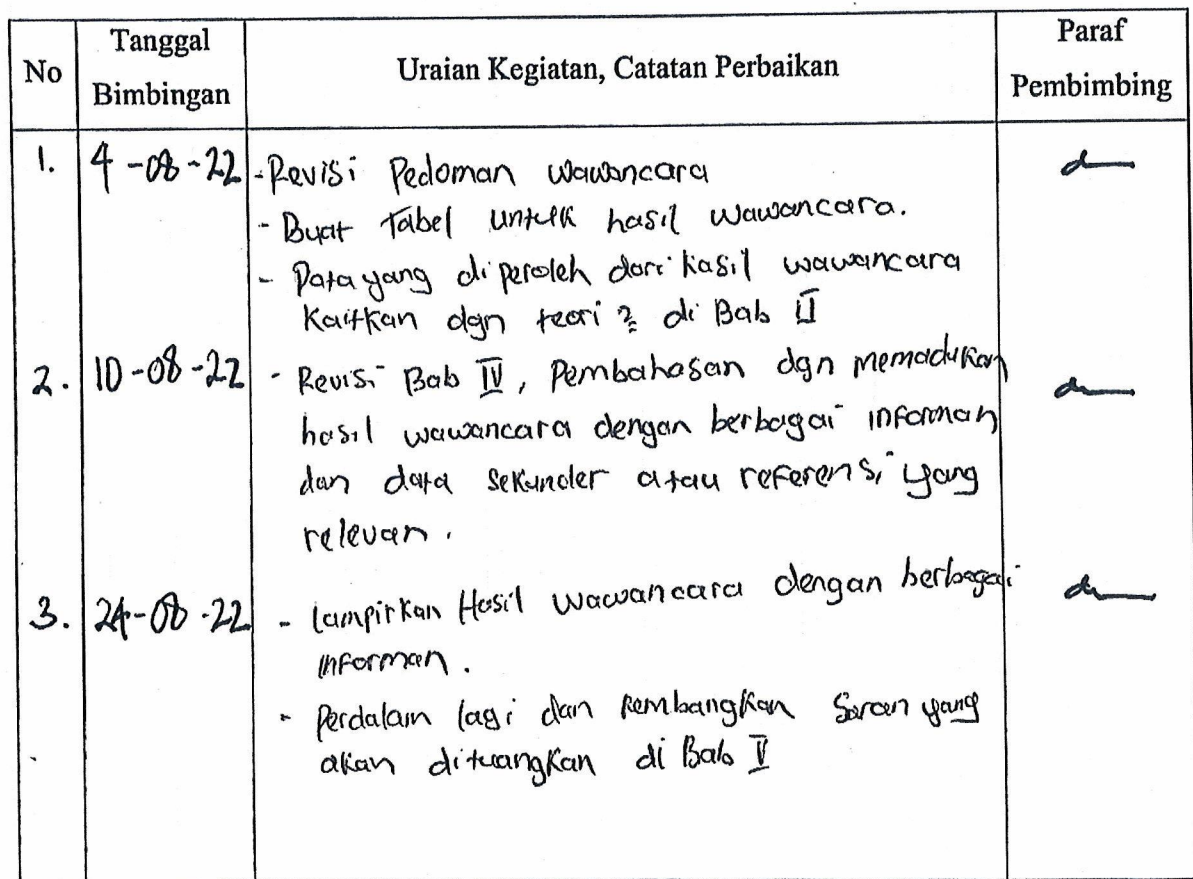 No
Tanggal
Bimbingan
Uraian Kegiatan, Catatan Perbaikan
Paraf
Pembimbing
1. 4-08-22 - Revisi Pedoman Wawancara
- Buat Tabel untuk hasil wawancara.
- Data yang diperoleh dari hasil wawancara
Kaitkan dgn teori 2 di Bab II
2. 10-08-22 - Revisi Bab IV, Pembahasan dgn memadukan
hasil wawancara dengan berbagai informan
dan data sekunder atau referensi yang
relevan.
3. 24-08-22 - Lampirkan Hasil wawancara dengan berbagai
informan.
- Perdalam lagi dan kembangkan Saran yang
akan dituangkan di Bab V